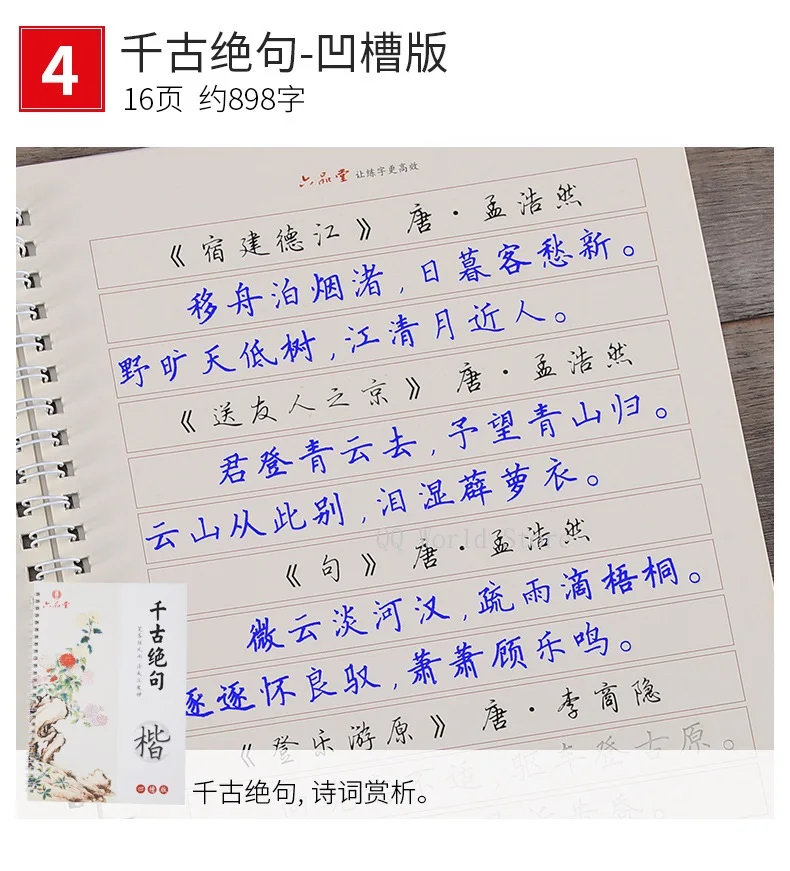 4
千古绝句-凹槽版
16页 约898字
六品堂 让练字更高效
《宿建德江》 唐·孟浩然
移舟泊烟渚,日暮客愁新。
野旷天低树,江清月近人。
《送友人之京》 唐·孟浩然
君登青云去,予望青山归。
云山从此别,泪湿薜萝衣。
QQ World Store
《句》 唐·孟浩然
微云淡河汉,疏雨滴梧桐。
逐逐怀良驭,萧萧顾乐鸣。
《登乐游原》 唐·李商隐
驱车登古原。
六品堂
千古绝句
楷
凹槽版
千古绝句, 诗词赏析。